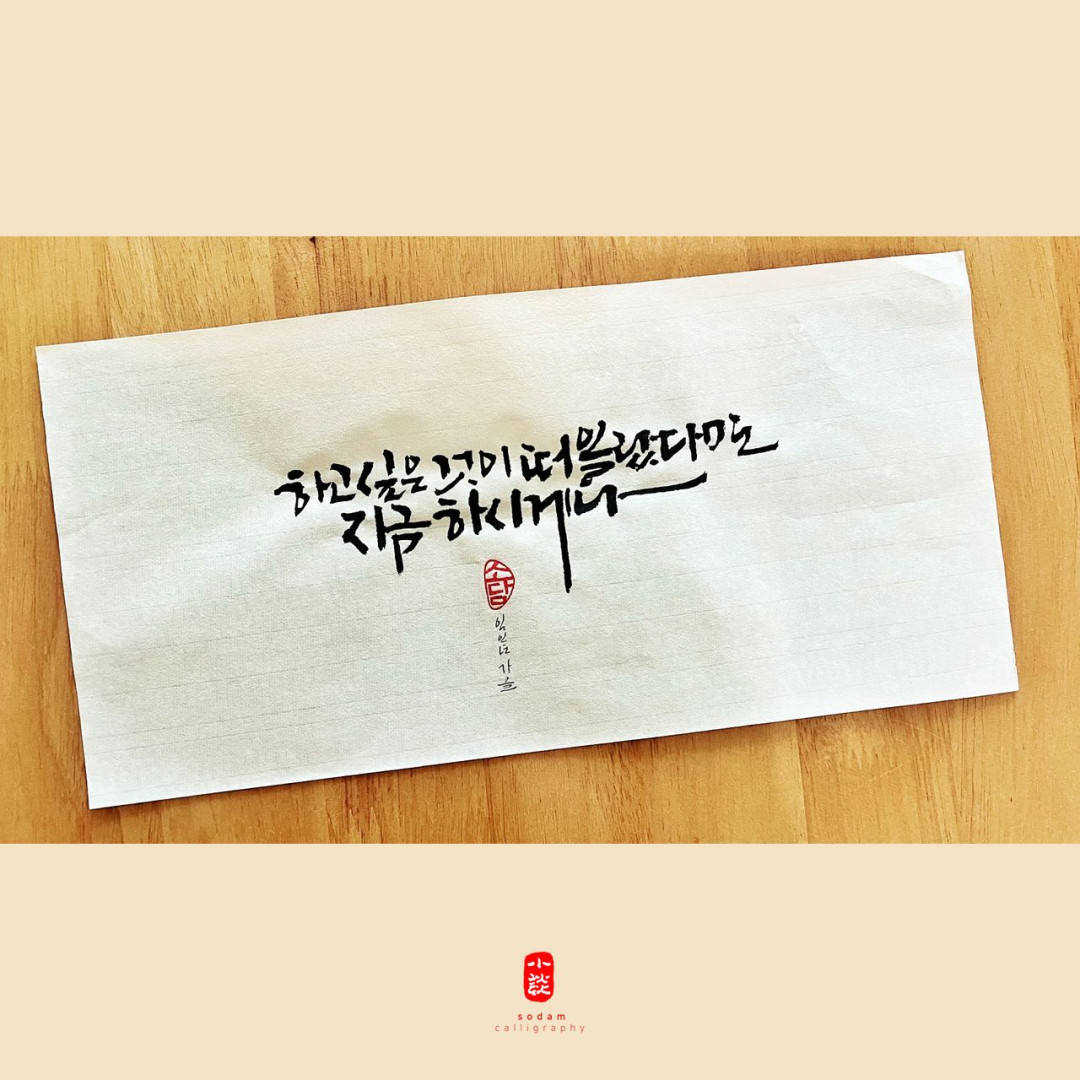 하고싶은 것이 떠올랐다면
지금 하시게나
소담
임인년 가을
sodam
calligraphy